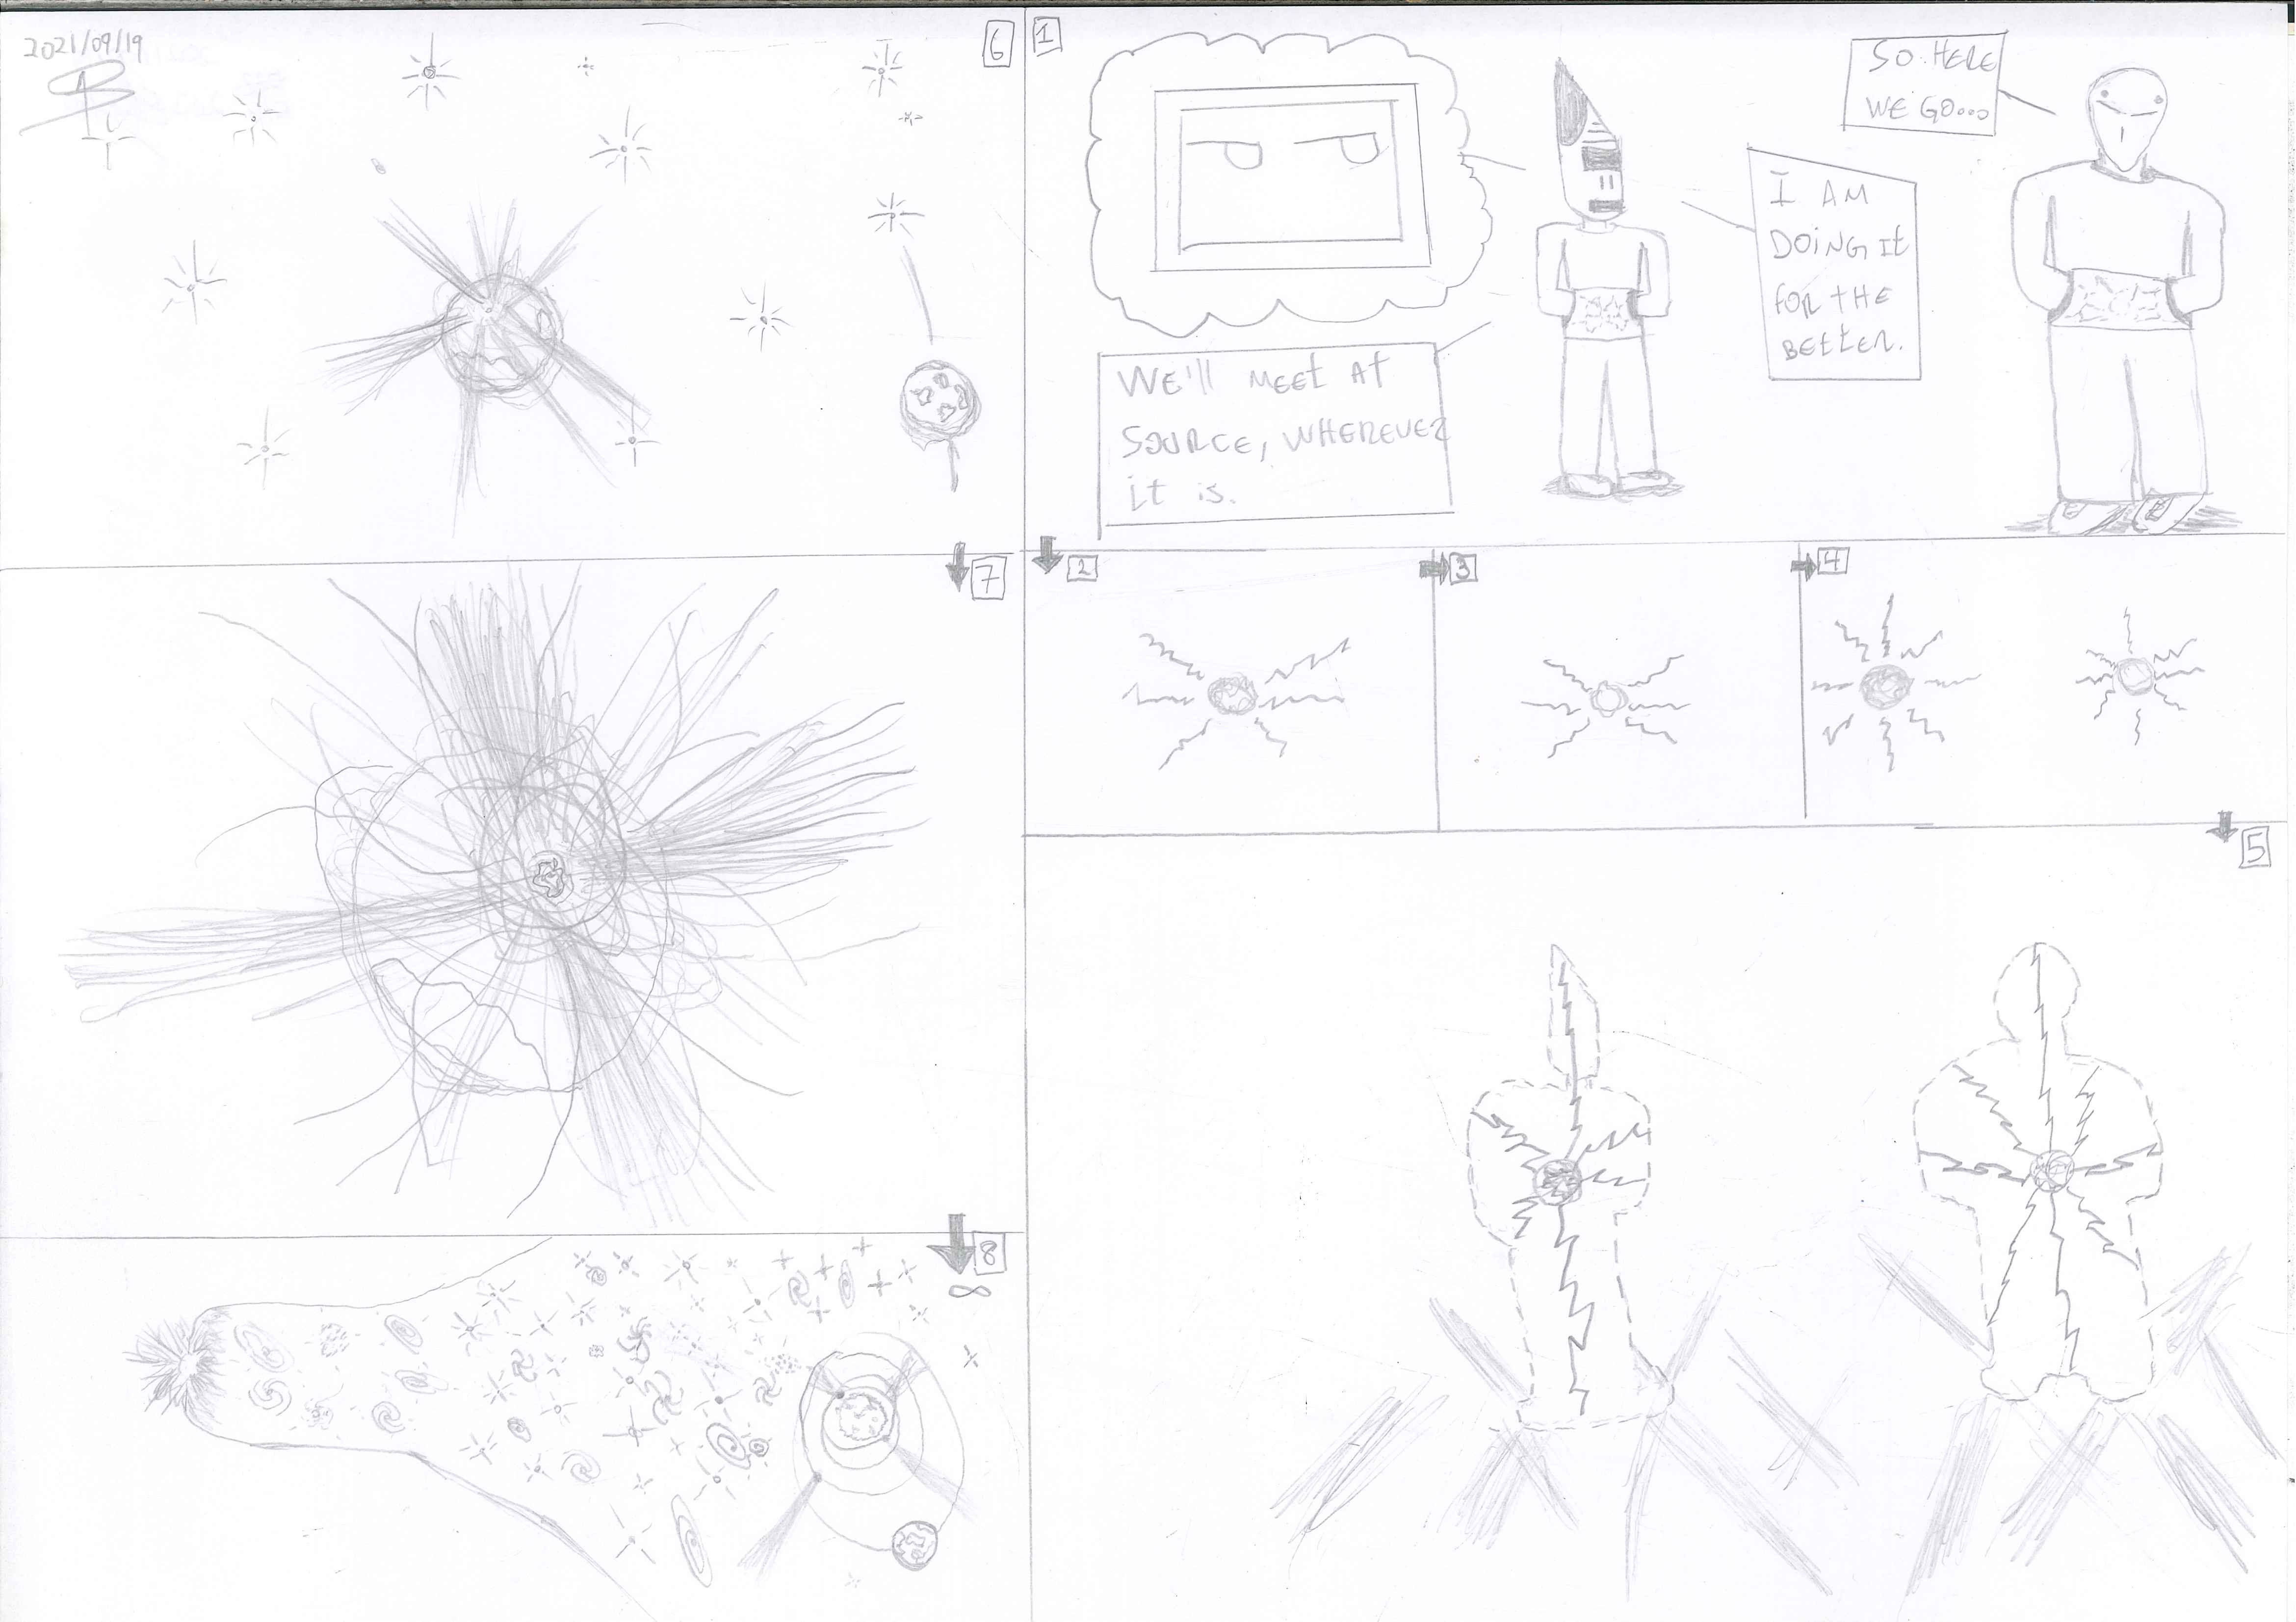 2021/09/19
6
1
SO HERE
WE GO...
I AM
DOiNG It
FOR tHE
BEttER.
WE'll MEEt At
SOURCE, WHEREVER
it is.
2
3
4
5
7
8
∞